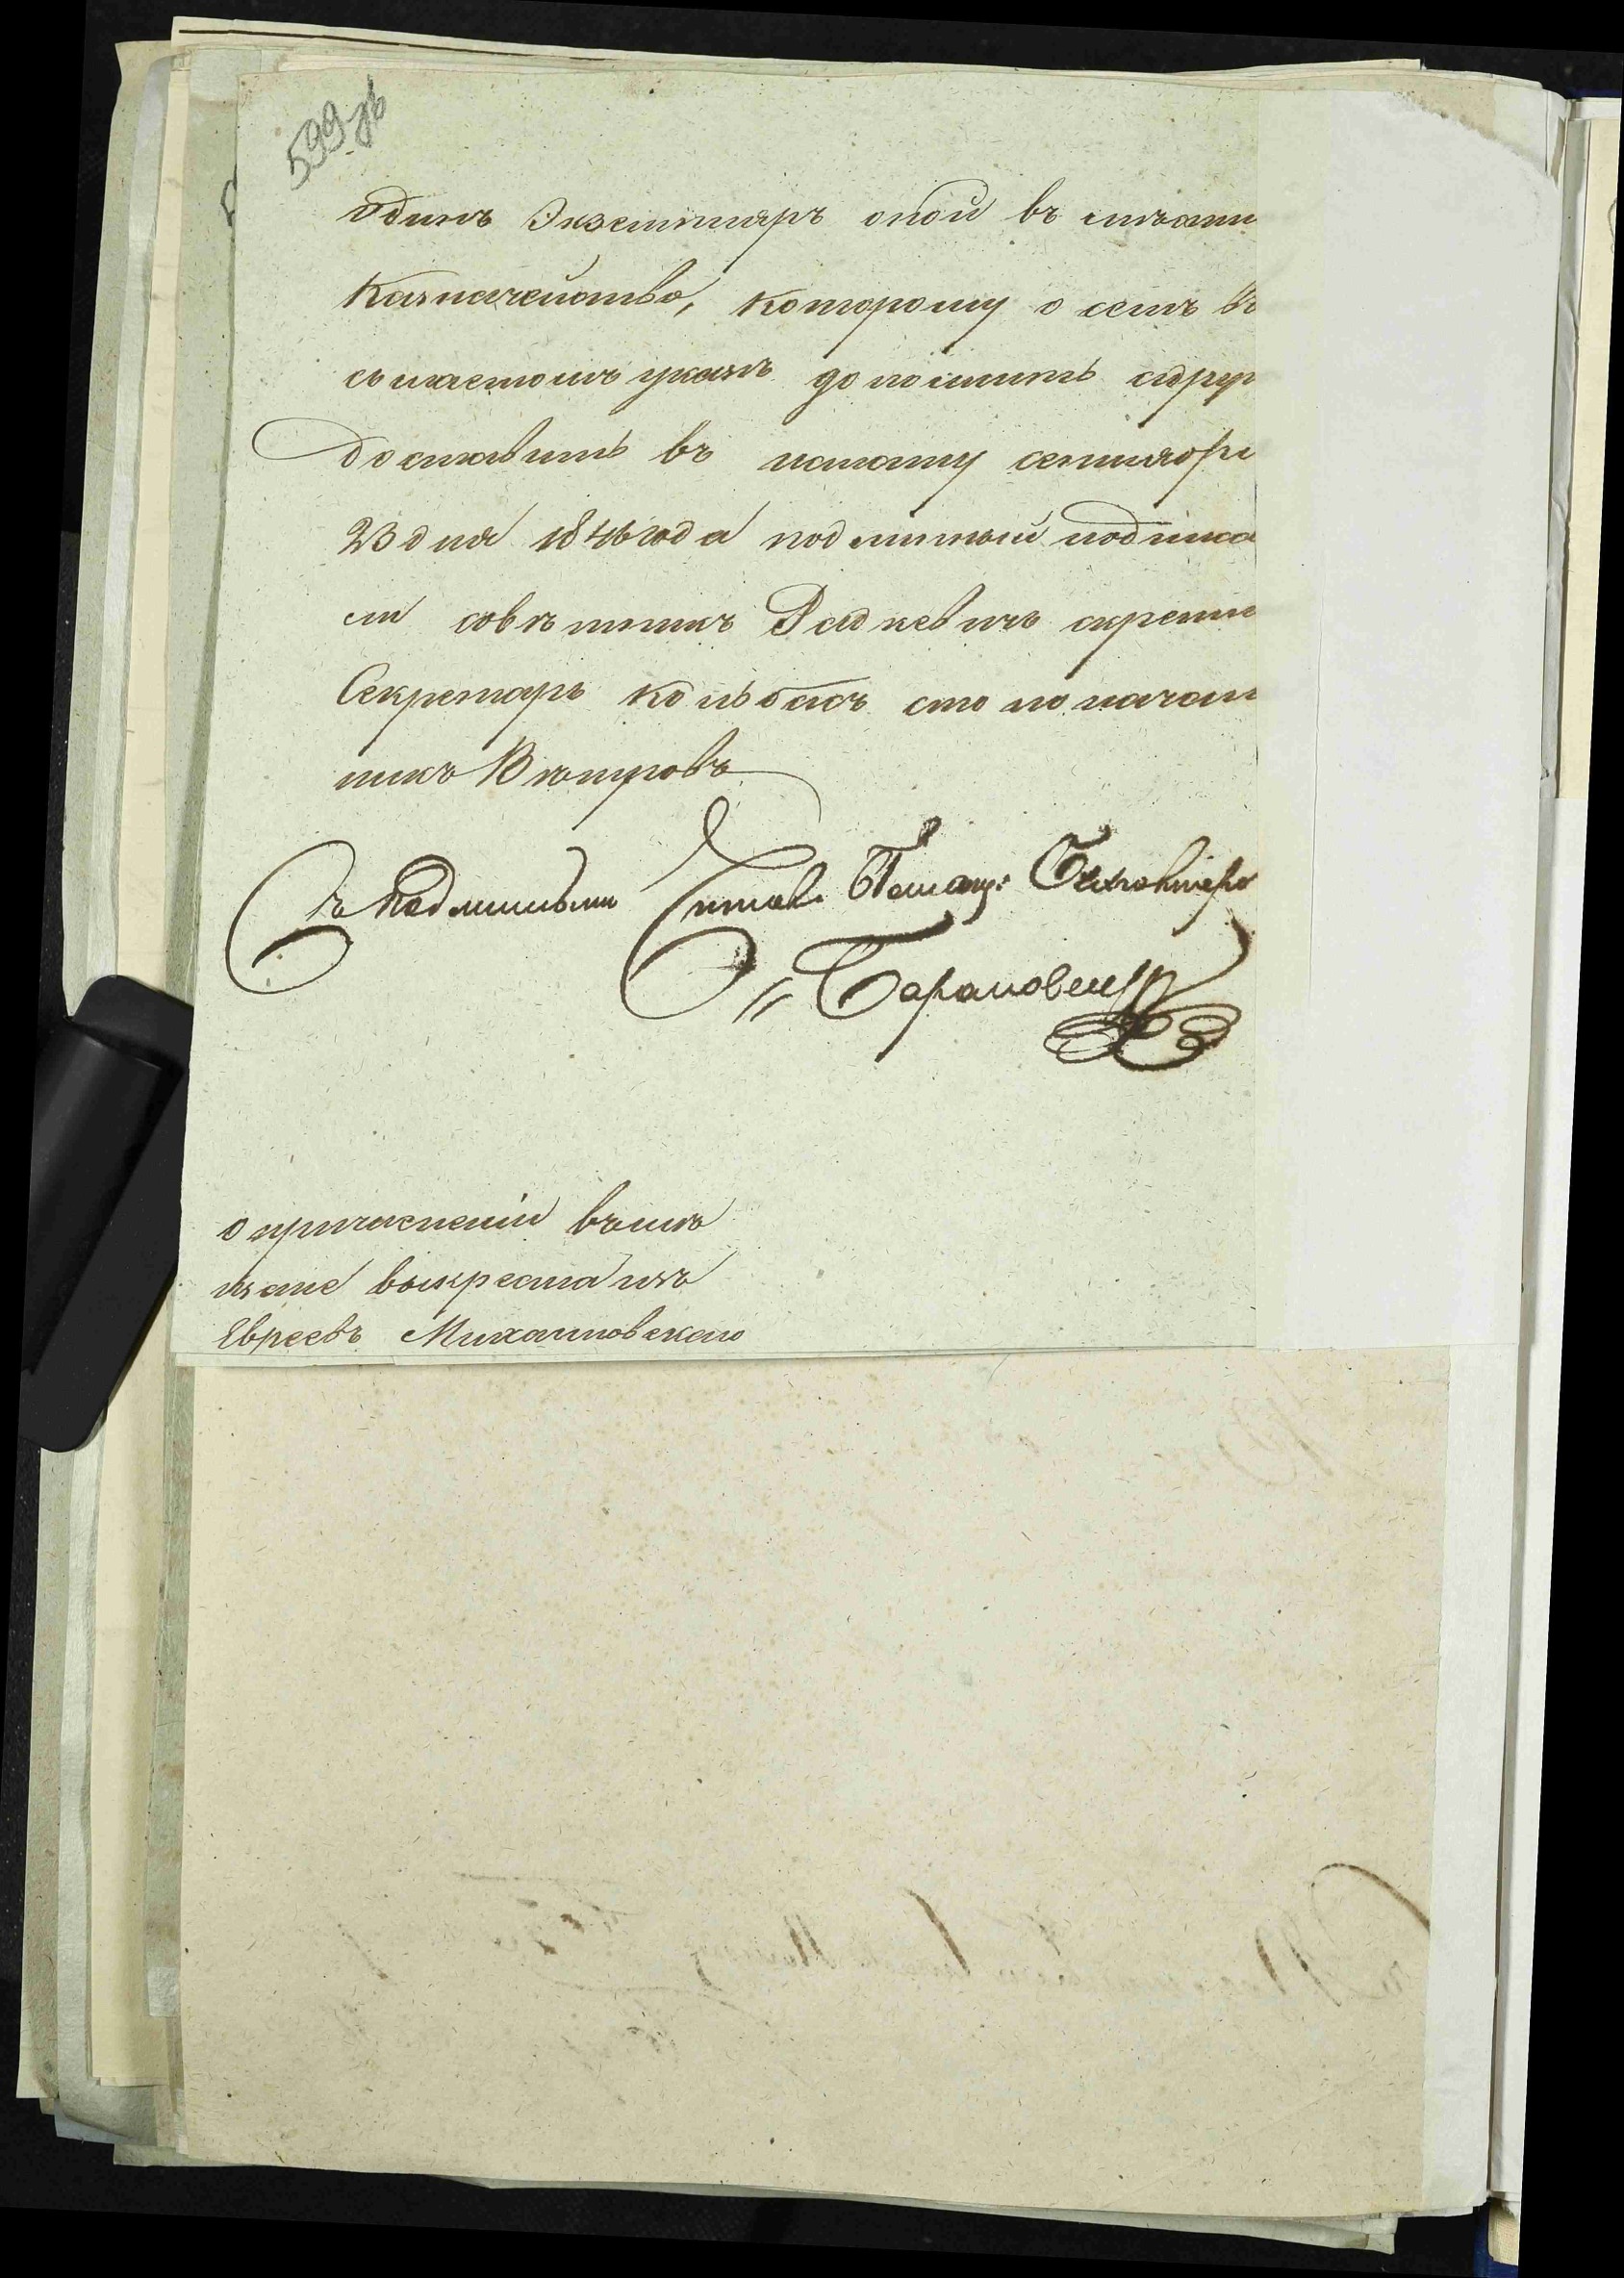 599 об
одинъ Экземпляръ оной въ
Казначейство, которому о семъ
указъ дополнить
доставить въ палату сентября
23 дня 1846 года подлинный подписа
ли совѣтникъ Радкевичъ скрепи
Секретарь столоначаль
никъ
Съ Подлиннымъ Читалъ Помощ: Бухгалтера
Барановскій
о причисленіи въ мѣ
щане выкреста изъ
Евреевъ Михаиловскаго